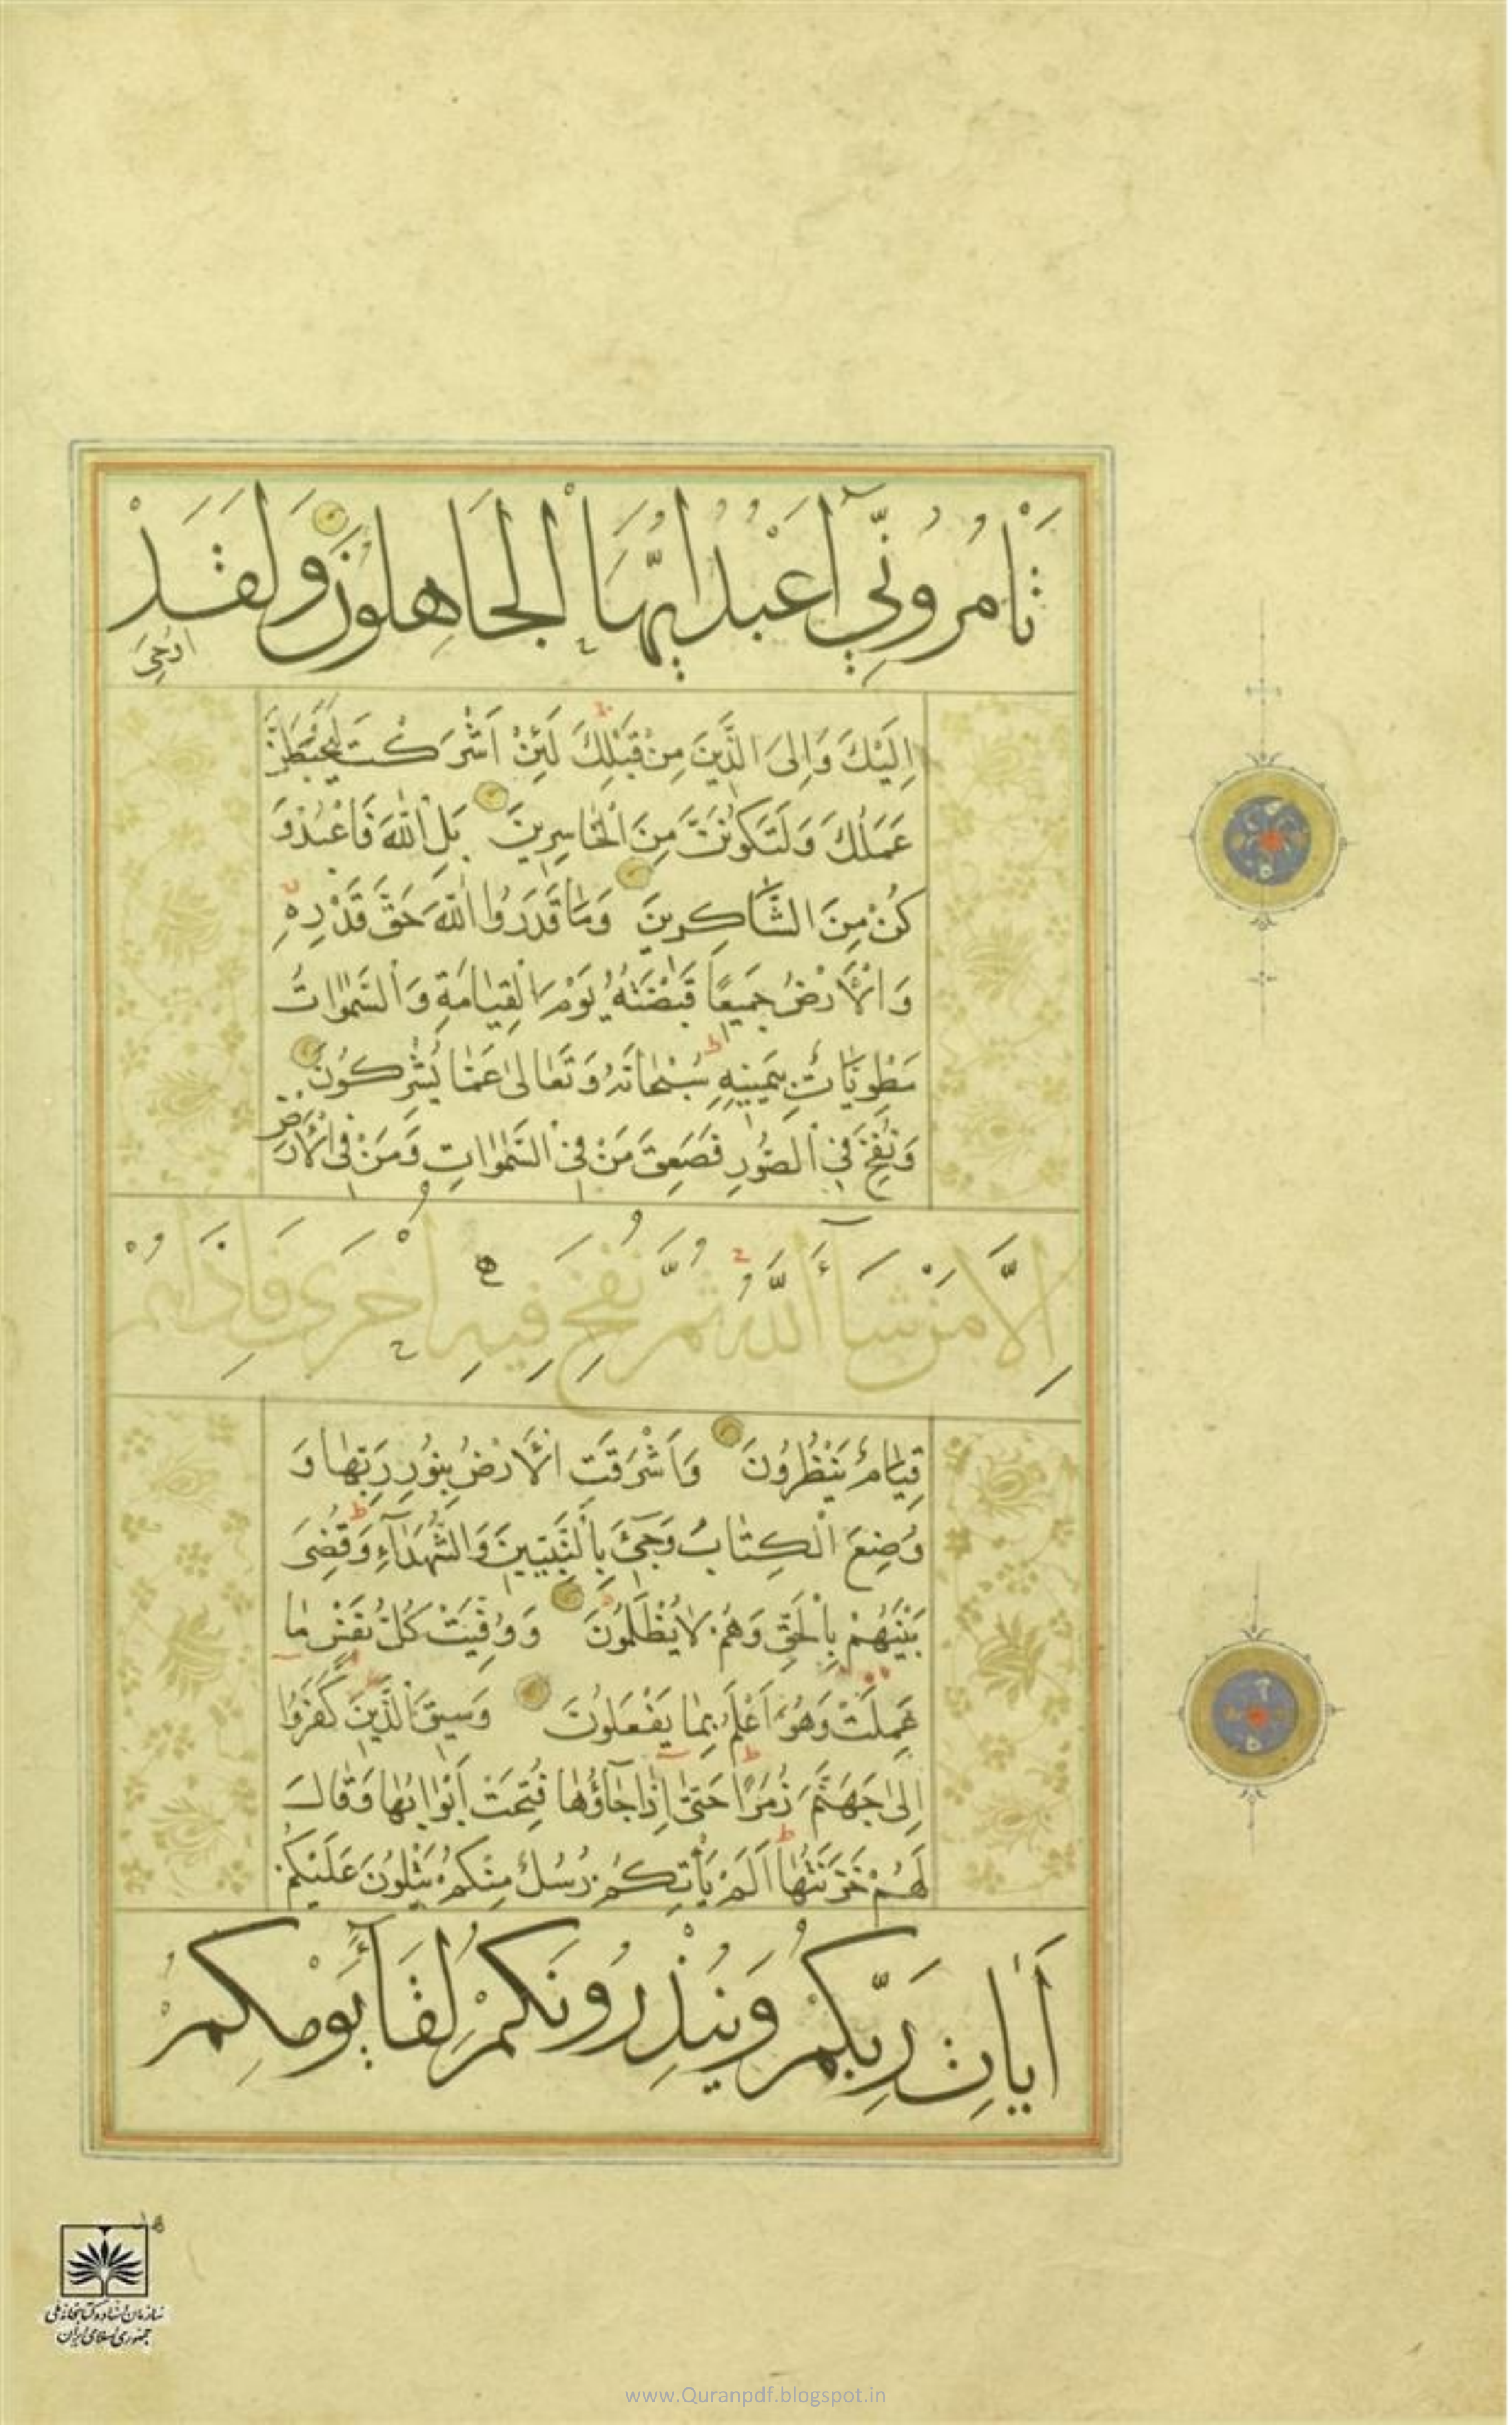 تَأْمُرُونِّي أَعْبُدُ أَيُّهَا الْجَاهِلُونَ وَلَقَدْ
اُوحِيَ
اِلَيْكَ وَاِلَى الَّذِينَ مِنْ قَبْلِكَ لَئِنْ اَشْرَكْتَ لَيَحْبَطَنَّ
عَمَلُكَ وَلَتَكُونَنَّ مِنَ الْخَاسِرِينَ بَلِ اللّٰهَ فَاعْبُدْ وَ
كُنْ مِنَ الشَّاكِرِينَ وَمَا قَدَرُوا اللّٰهَ حَقَّ قَدْرِهِ
وَالْأَرْضُ جَمِيعًا قَبْضَتُهُ يَوْمَ الْقِيٰامَةِ وَالسَّمٰوٰاتُ
مَطْوِيَّاتٌ بِيَمِينِهِ سُبْحٰانَهُ وَتَعٰالىٰ عَمّٰا يُشْرِكُونَ
وَنُفِخَ فِي الصُّورِ فَصَعِقَ مَنْ فِي السَّمٰوٰاتِ وَمَنْ فِي الْأَرْضِ
اِلَّا مَنْ شَآءَ اللّٰهُ ثُمَّ نُفِخَ فِيهِ اُخْرَى فَاِذَا هُمْ
قِيٰامٌ يَنْظُرُونَ وَاَشْرَقَتِ الْأَرْضُ بِنُورِ رَبِّهٰا وَ
وُضِعَ الْكِتٰابُ وَجِيءَ بِالنَّبِيِّينَ وَالشُّهَدٰآءِ وَقُضِيَ
بَيْنَهُمْ بِالْحَقِّ وَهُمْ لٰا يُظْلَمُونَ وَوُفِّيَتْ كُلُّ نَفْسٍ مٰا
عَمِلَتْ وَهُوَ اَعْلَمُ بِمٰا يَفْعَلُونَ وَسِيقَ الَّذِينَ كَفَرُوا
اِلىٰ جَهَنَّمَ زُمَرًا حَتّٰى اِذٰا جٰآؤُهٰا فُتِحَتْ اَبْوٰابُهٰا وَقٰالَ
لَهُمْ خَزَنَتُهٰا اَلَمْ يَأْتِكُمْ رُسُلٌ مِنْكُمْ يَتْلُونَ عَلَيْكُمْ
اٰيَاتِ رَبِّكُمْ وَيُنْذِرُونَكُمْ لِقَآءَ يَوْمِكُمْ
سازمان اسناد و کتابخانه ملی
جمهوری اسلامی ایران
www.Quranpdf.blogspot.in